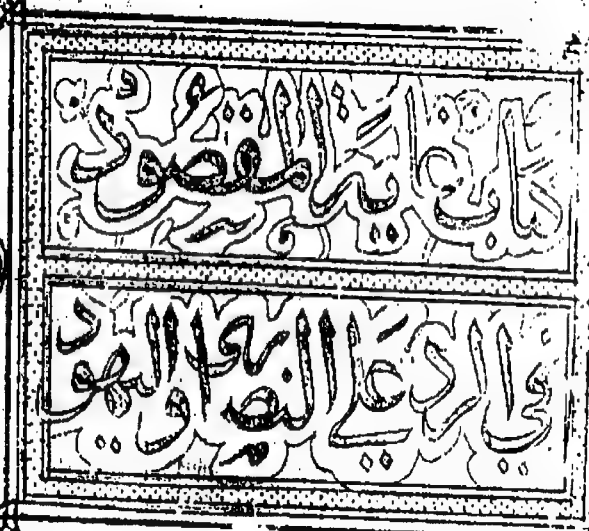 كتاب غاية المقصود
في الرد على النصارى واليهود